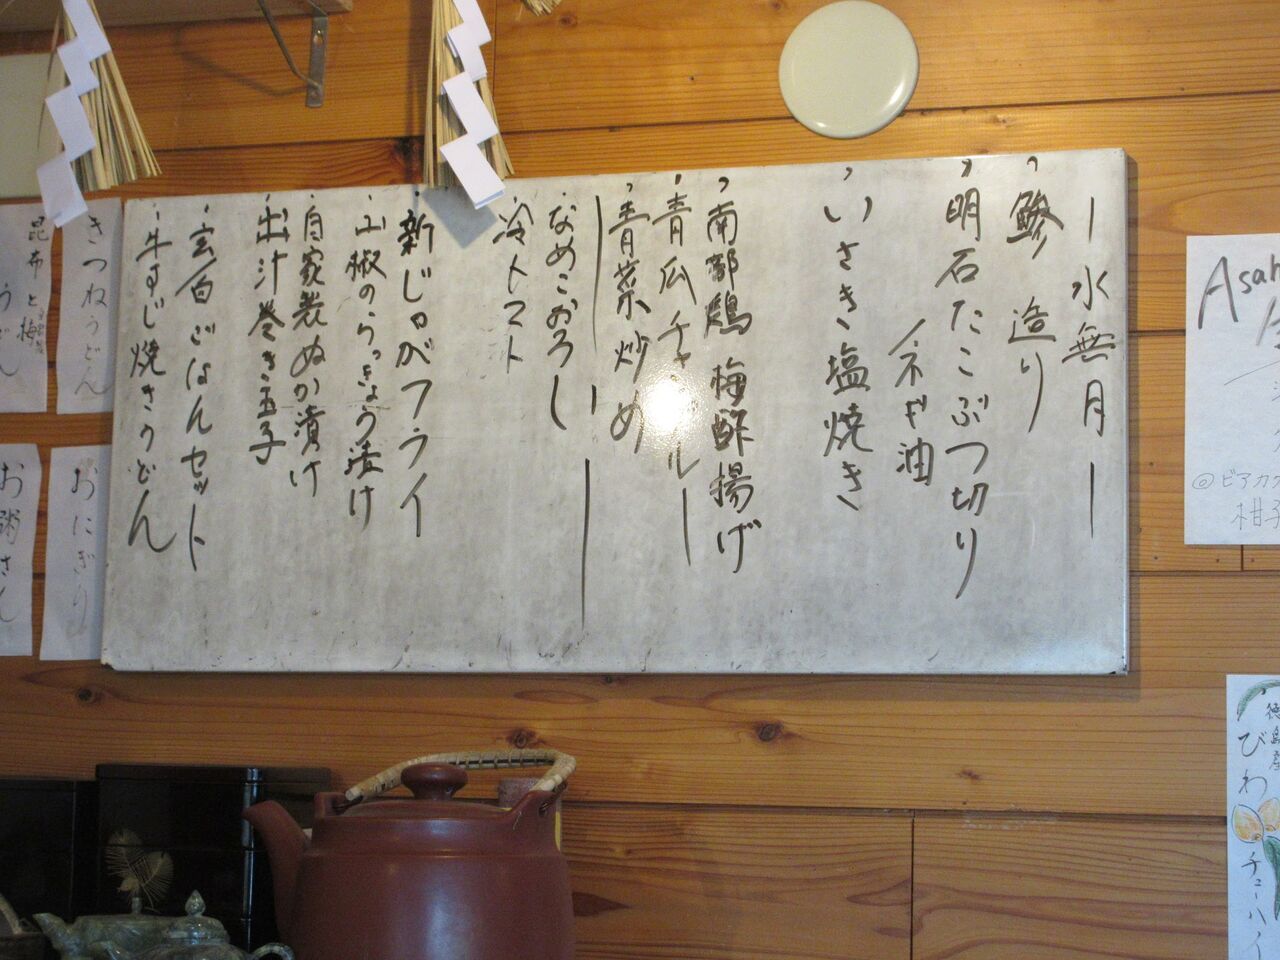 ー水無月ー
鰺 造り
明石たこぶつ切り
ネギ油
いさき塩焼き
南部鶏 梅酢揚げ
青瓜チャンプルー
青菜炒め
なめこおろし
冷トマト
新じゃがフライ
山椒のらっきょう漬け
自家製ぬか漬け
出汁巻き玉子
玄白ごはんセット
牛すじ焼きうどん
きつねうどん
昆布と梅
うどん
おにぎり
お粥さん
Asah
◎ビアカク
柑子
徳島産
びわ
チューハイ